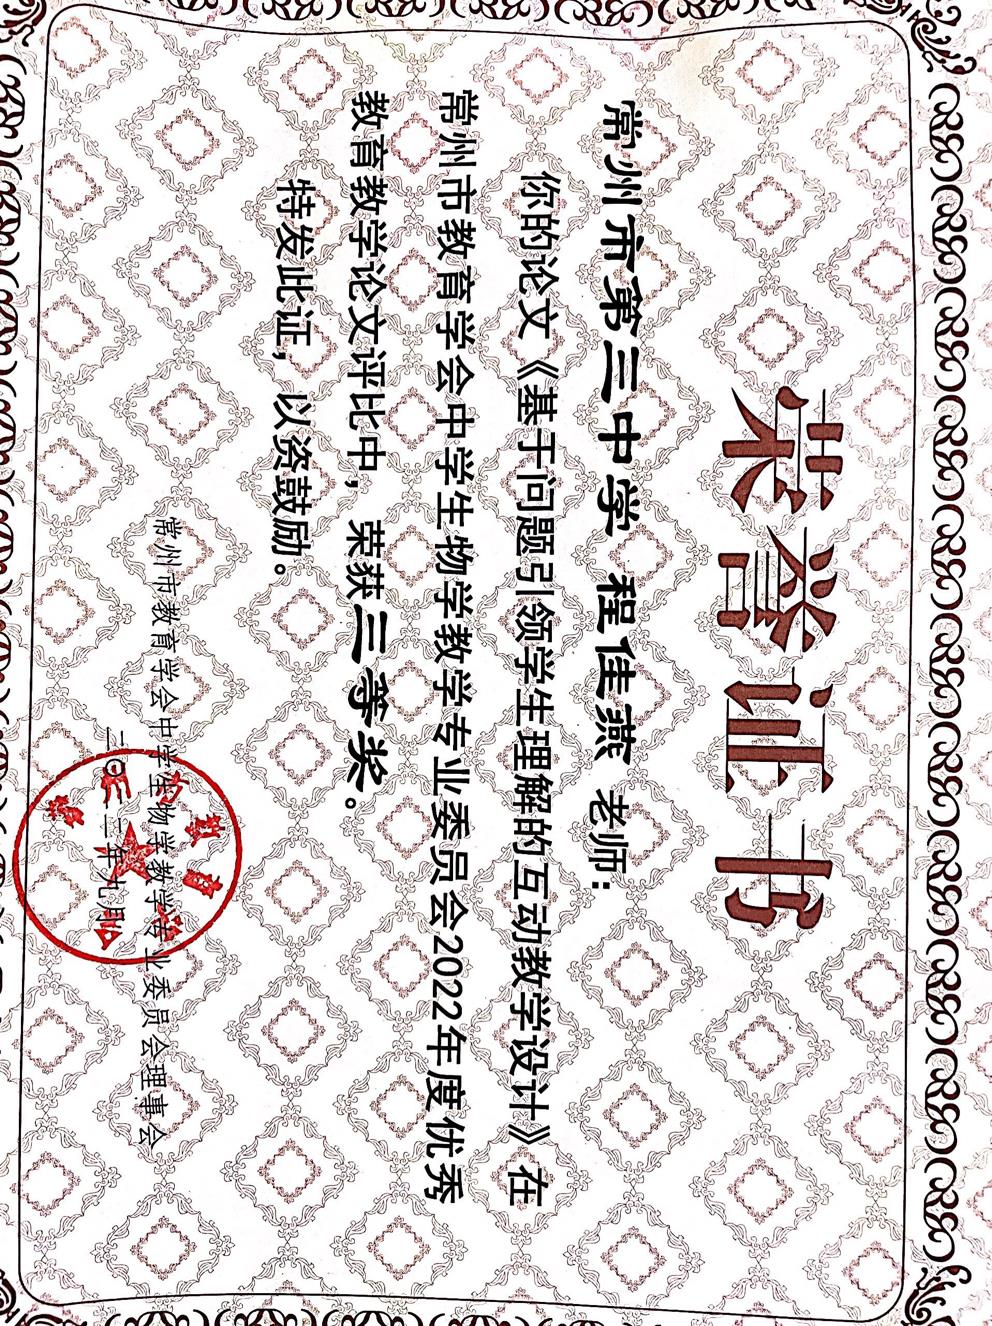 荣誉证书
常州市第三中学 程佳燕 老师：
你的论文《基于问题引领学生理解的互动教学设计》在
常州市教育学会中学生物学教学专业委员会2022年度优秀
教育教学论文评比中，荣获三等奖。
特发此证，以资鼓励。
常州市教育学会中学生物学教学专业委员会理事会
二〇二二年九月